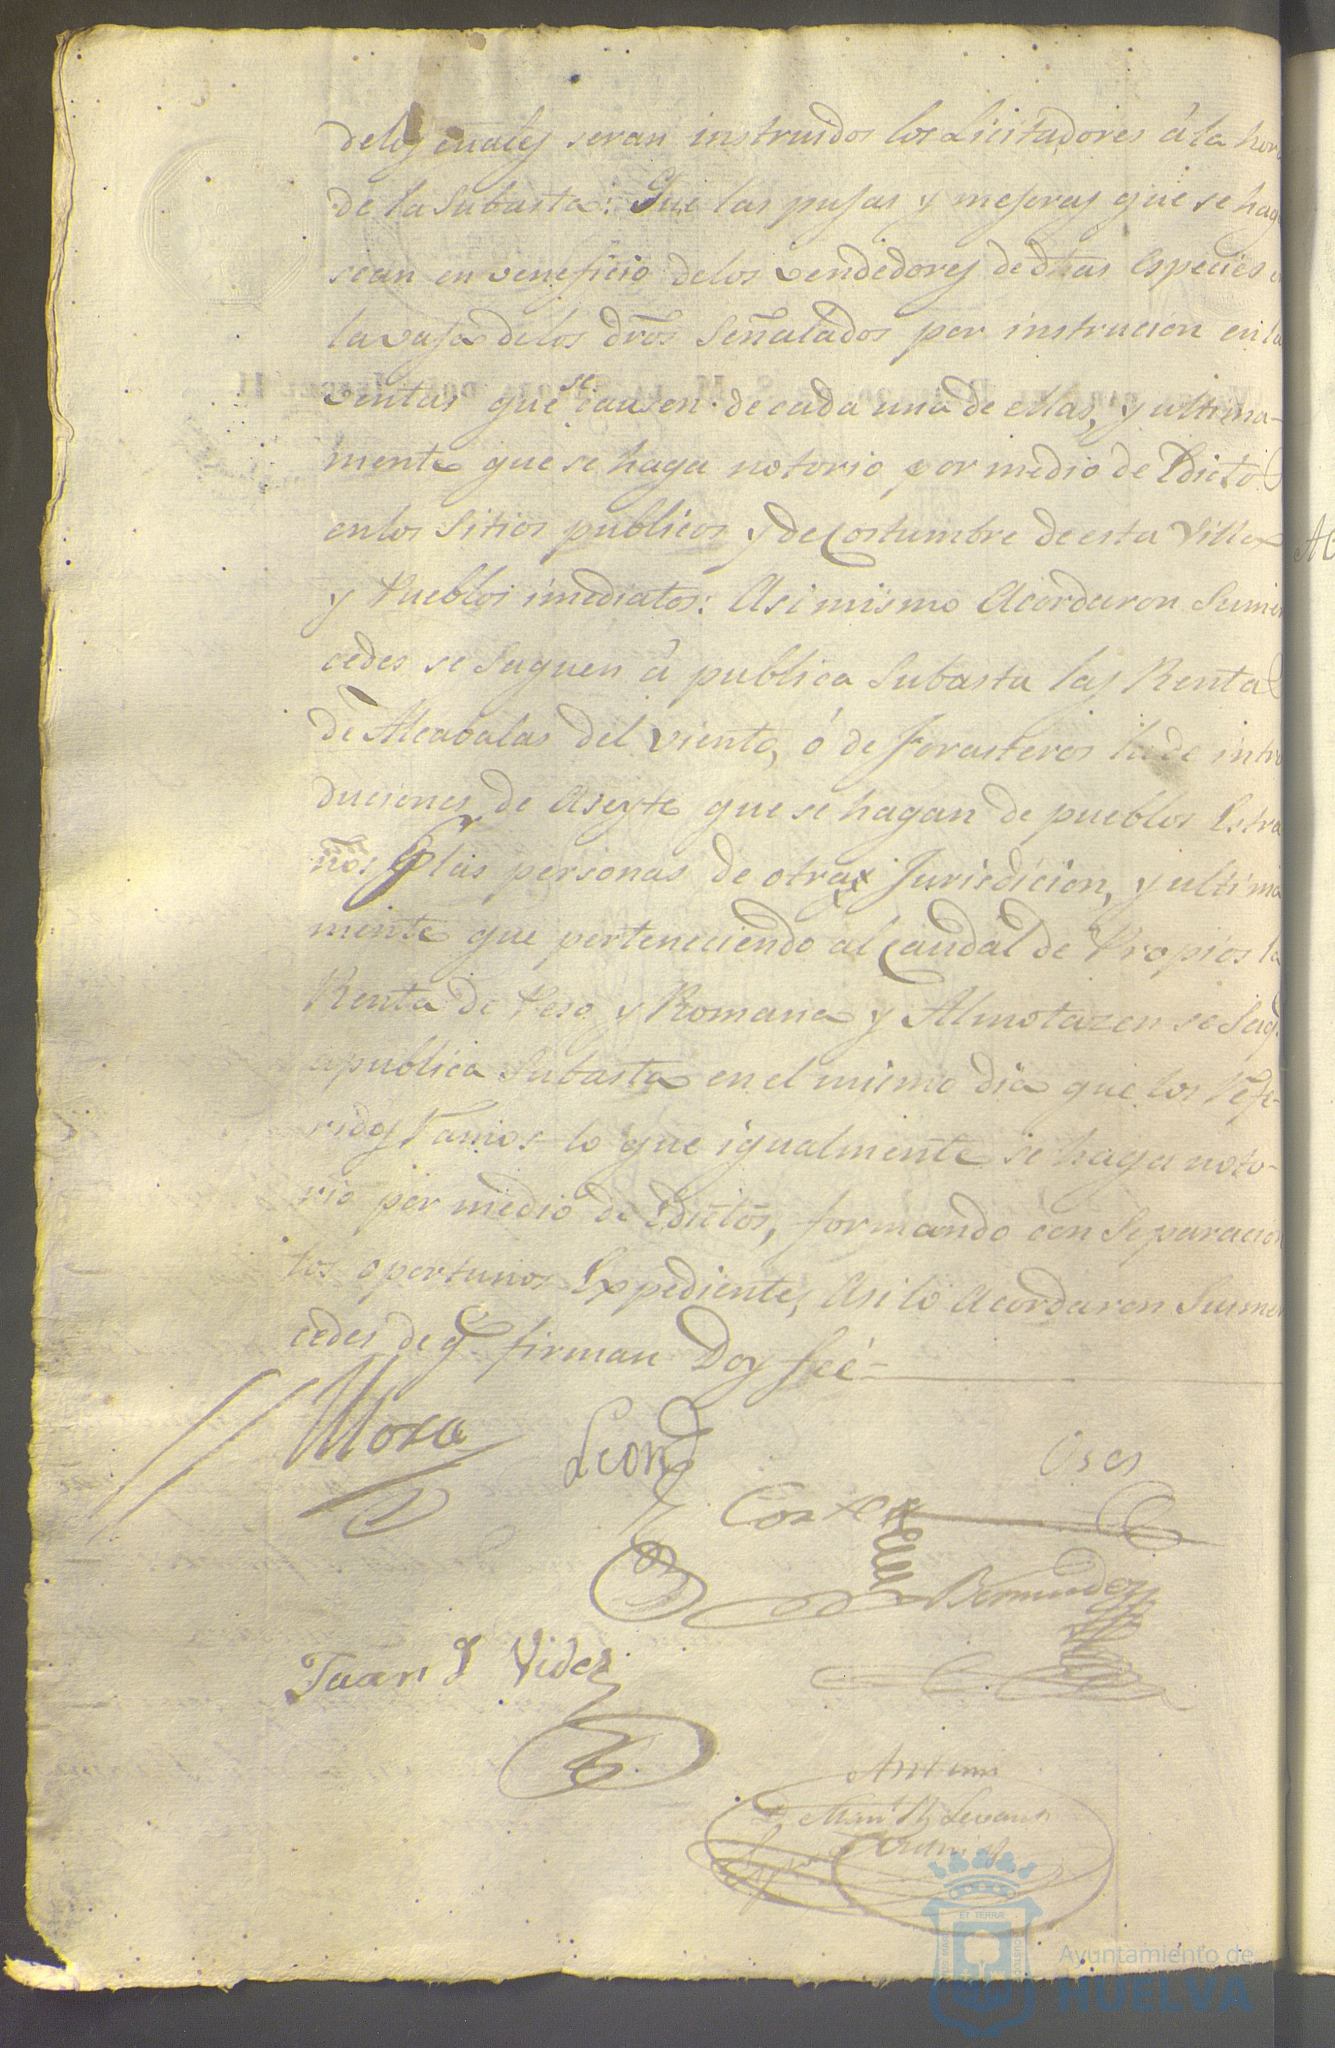 delos cuales seran instruidos los Licitadores á la hora
de la Subasta: Que las pujas y mejoras que se hag
sean en veneficio delos vendedores de dhas Especies
la vaja delos dros Señalados por instrucion en la
ventas que se causen de cada una de ellas, y ultima-
mente que se haga notorio por medio de Edictos
enlos Sitios publicos y de Costumbre de esta Villa
y Pueblos imediatos: Asi mismo Acordaron Sumer
cedes se saquen á publica Subasta las Rentas
de Alcabalas del viento, ó de Forasteros de intro
duciones de Aseyte que se hagan de pueblos Estra
ños las personas de otra Jurisdicion, y ultima
mente que perteneciendo al Caudal de Propios la
Renta de Peso y Romana y Almotazen se saq
apublica Subasta en el mismo dia que los refe-
ridos ramos lo que igualmente se haga noto-
rio por medio de Edictos, formando con Separacion
los oportunos Expedientes, Asi lo Acordaron Sumer
cedes de q. firman Doy feé
Mora
Leon
Oses
Cortes
Bermudez
Juan J Vides
Antemi
ET TERRÆ
Ayuntamiento de
HUELVA